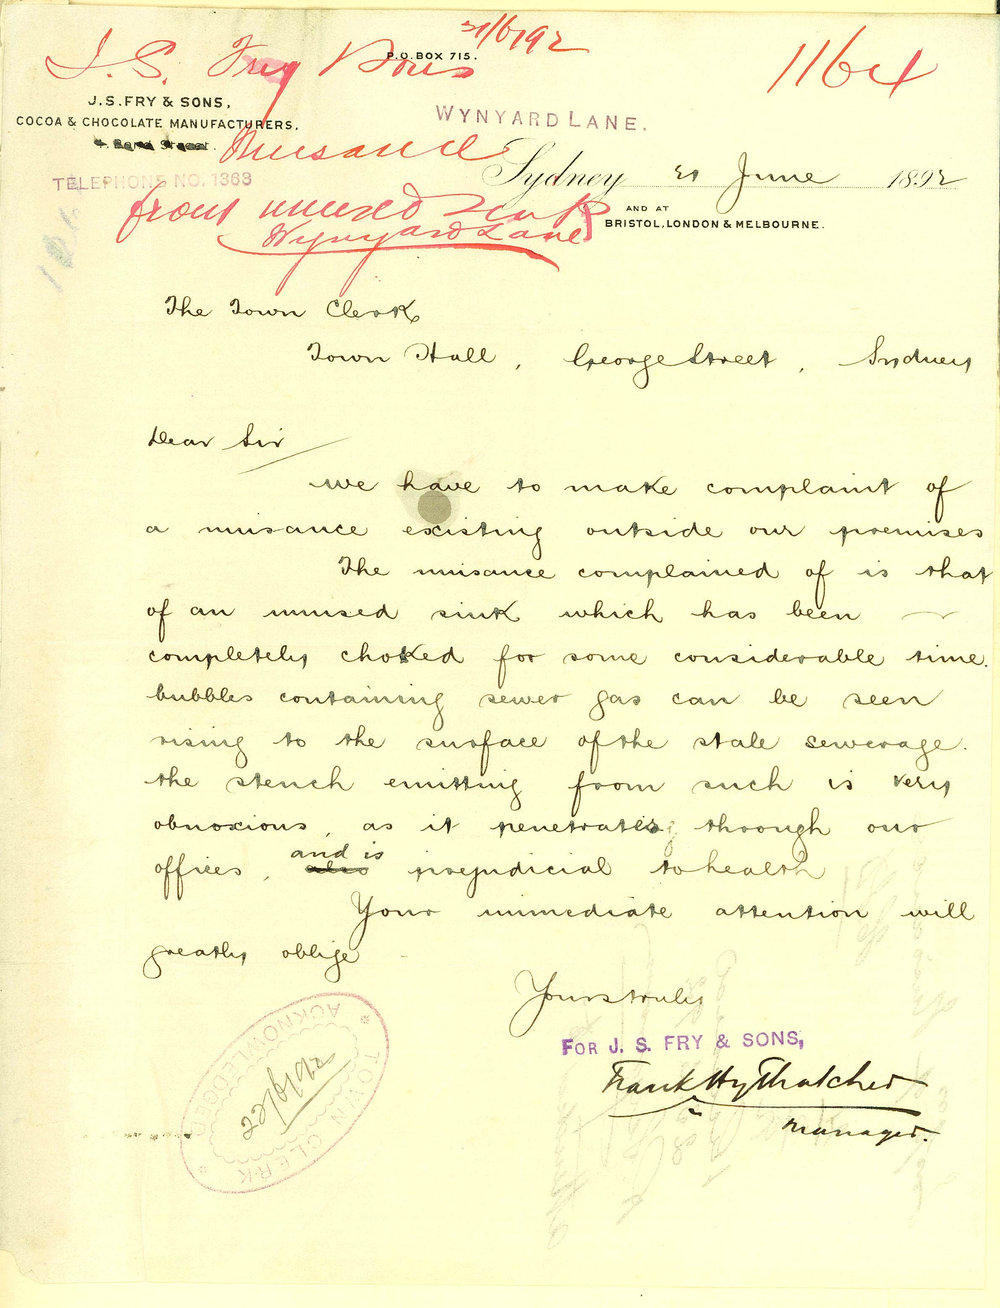 21/6/92
J. S. Fry & Sons
1164
P.O. BOX 715.
J. S. FRY & SONS,
COCOA & CHOCOLATE MANUFACTURERS,
WYNYARD LANE.
Nuisance
TELEPHONE NO. 1363
Sydney 21 June 1892
from unused sink
Wynyard Lane
AND AT
BRISTOL, LONDON & MELBOURNE.
The Town Clerk
Town Hall, George Street, Sydney
Dear Sir
We have to make complaint of
a nuisance existing outside our premises
The nuisance complained of is that
of an unused sink which has been
completely choked for some considerable time.
bubbles containing sewer gas can be seen
rising to the surface of the stale sewerage.
the stench emitting from such is very
obnoxious, as it penetrates through our
offices, and is prejudicial to health
Your immediate attention will
greatly oblige
Yours truly
FOR J. S. FRY & SONS,
Frank Hy Thatcher
Manager.
TOWN CLERK
ACKNOWLEDGED
22/6/92